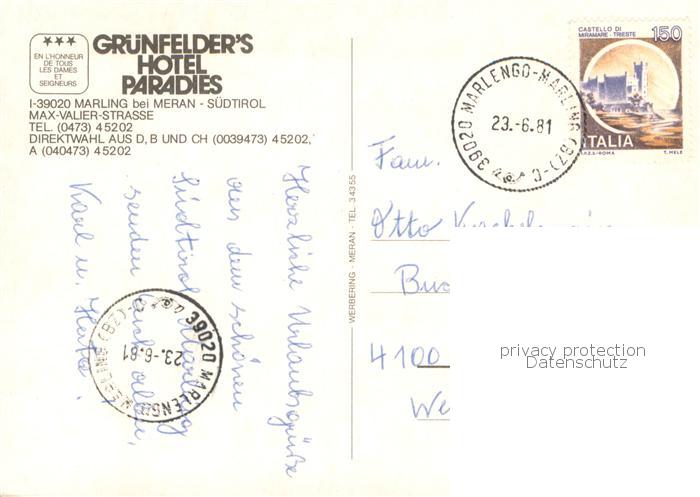 ★★★
EN L'HONNEUR
DE TOUS
LES DAMES
ET
SEIGNEURS
GRÜNFELDER'S
HOTEL
PARADIES
I-39020 MARLING bei MERAN - SÜDTIROL
MAX-VALIER-STRASSE
TEL. (0473) 45202
DIREKTWAHL AUS D, B UND CH (0039473) 45202,
A (040473) 45202
Herzliche Urlaubsgrüße
aus dem schönen
Südtirol Marling
senden Euch allen,
Karl u. Herta.
39020 MARLENGO-MARLING (BZ)-C
23.-6.81
WERBERING - MERAN - TEL. 34355
CASTELLO DI
MIRAMARE - TRIESTE
150
ITALIA
I.P.Z.S.-ROMA
T. MELE
39020 MARLENGO-MARLING (BZ)-C
23.-6.81
Fam.
Otto
Buc
4100
We
privacy protection
Datenschutz